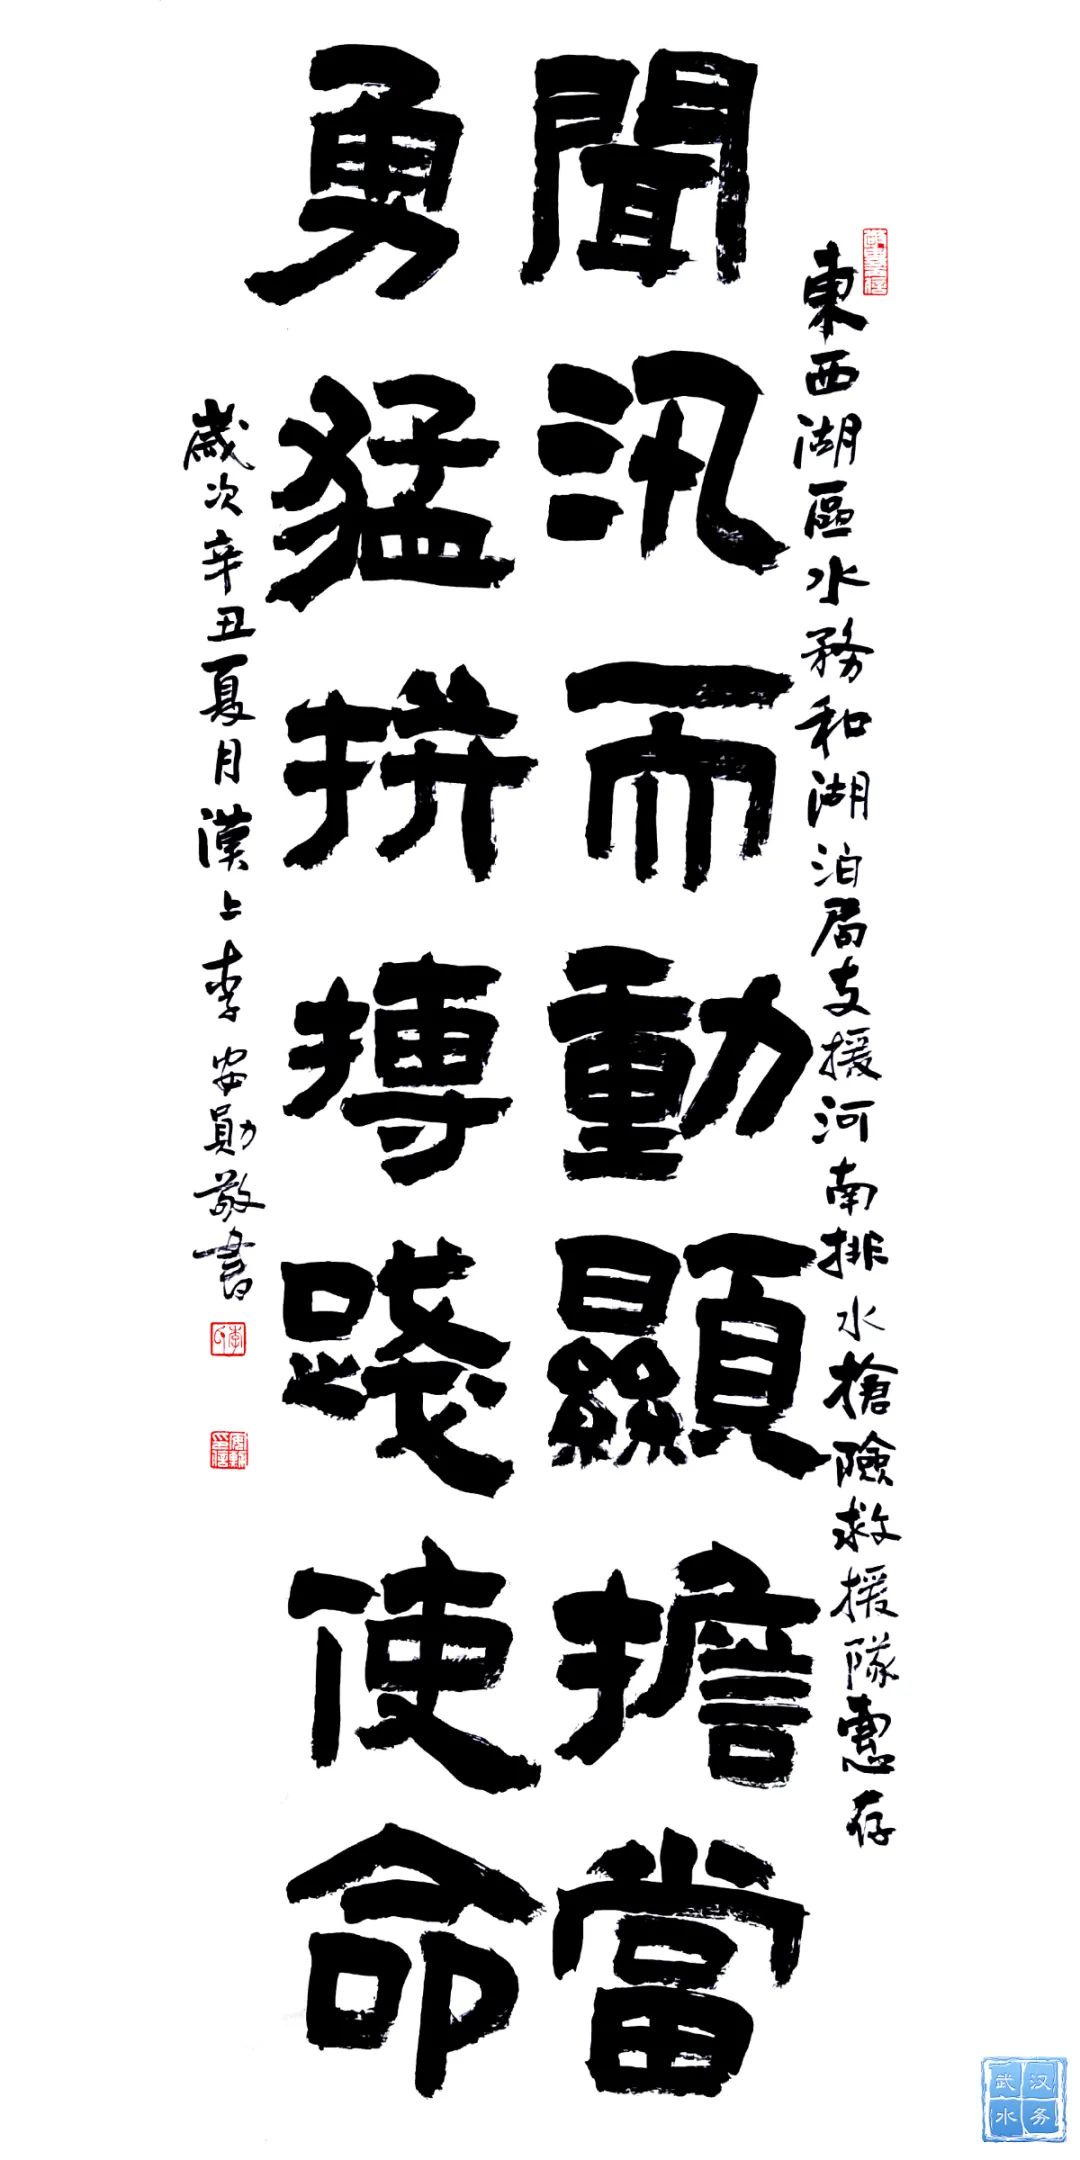 東西湖區水務和湖泊局支援河南排水搶險救援隊惠存
聞汛而動顯擔當
勇猛拼搏踐使命
歲次辛丑夏月漢上李安勛敬書
武汉水务